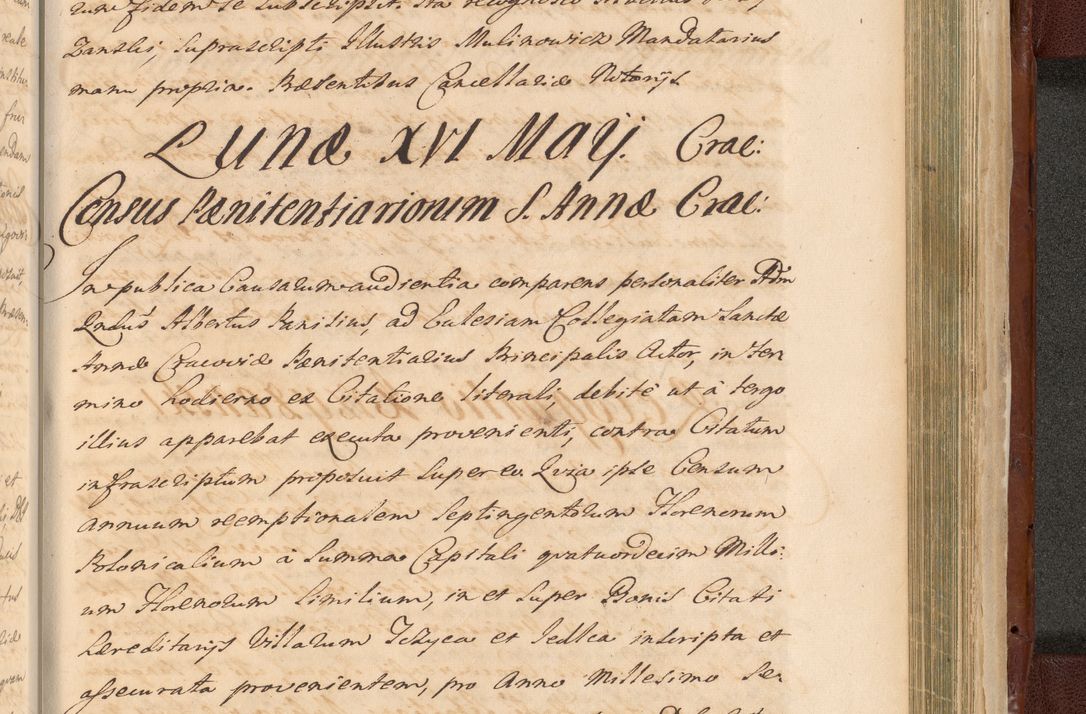 rum fidem se subscripsit. Ita recognosco
Zanslei, suprascripti Illustris Mulinowicz Mandatarius
manu propria. Præsentibus Cancellariæ Notarijs
Lunæ XVI Maij. Crac:
Census Pænitentiariorum S. Annæ Crac:
In publica Causarum audientia comparens personaliter Adm
Rndus Albertus Panisius, ad Eclesiam Collegiatam Sanctæ
Annæ Cracoviæ Pænitentiarius Principalis Actor, in ter
mino hodierno ex Citatione literali, debitè ut à tergo
illius apparebat executa provenienti, contra Citatum
infrascriptum proposuit super eo. Quia ipse Censum
annuum reemptionalem septingentorum Florenorum
Polonicalium à Summa Capitali quatuordecim Milli:
um Florenorum similium, in et super Bonis Citati
hæreditarijs Villarum Iczyca et Jedlca inscripta et
assecurata provenientem, pro Anno Millesimo Se-